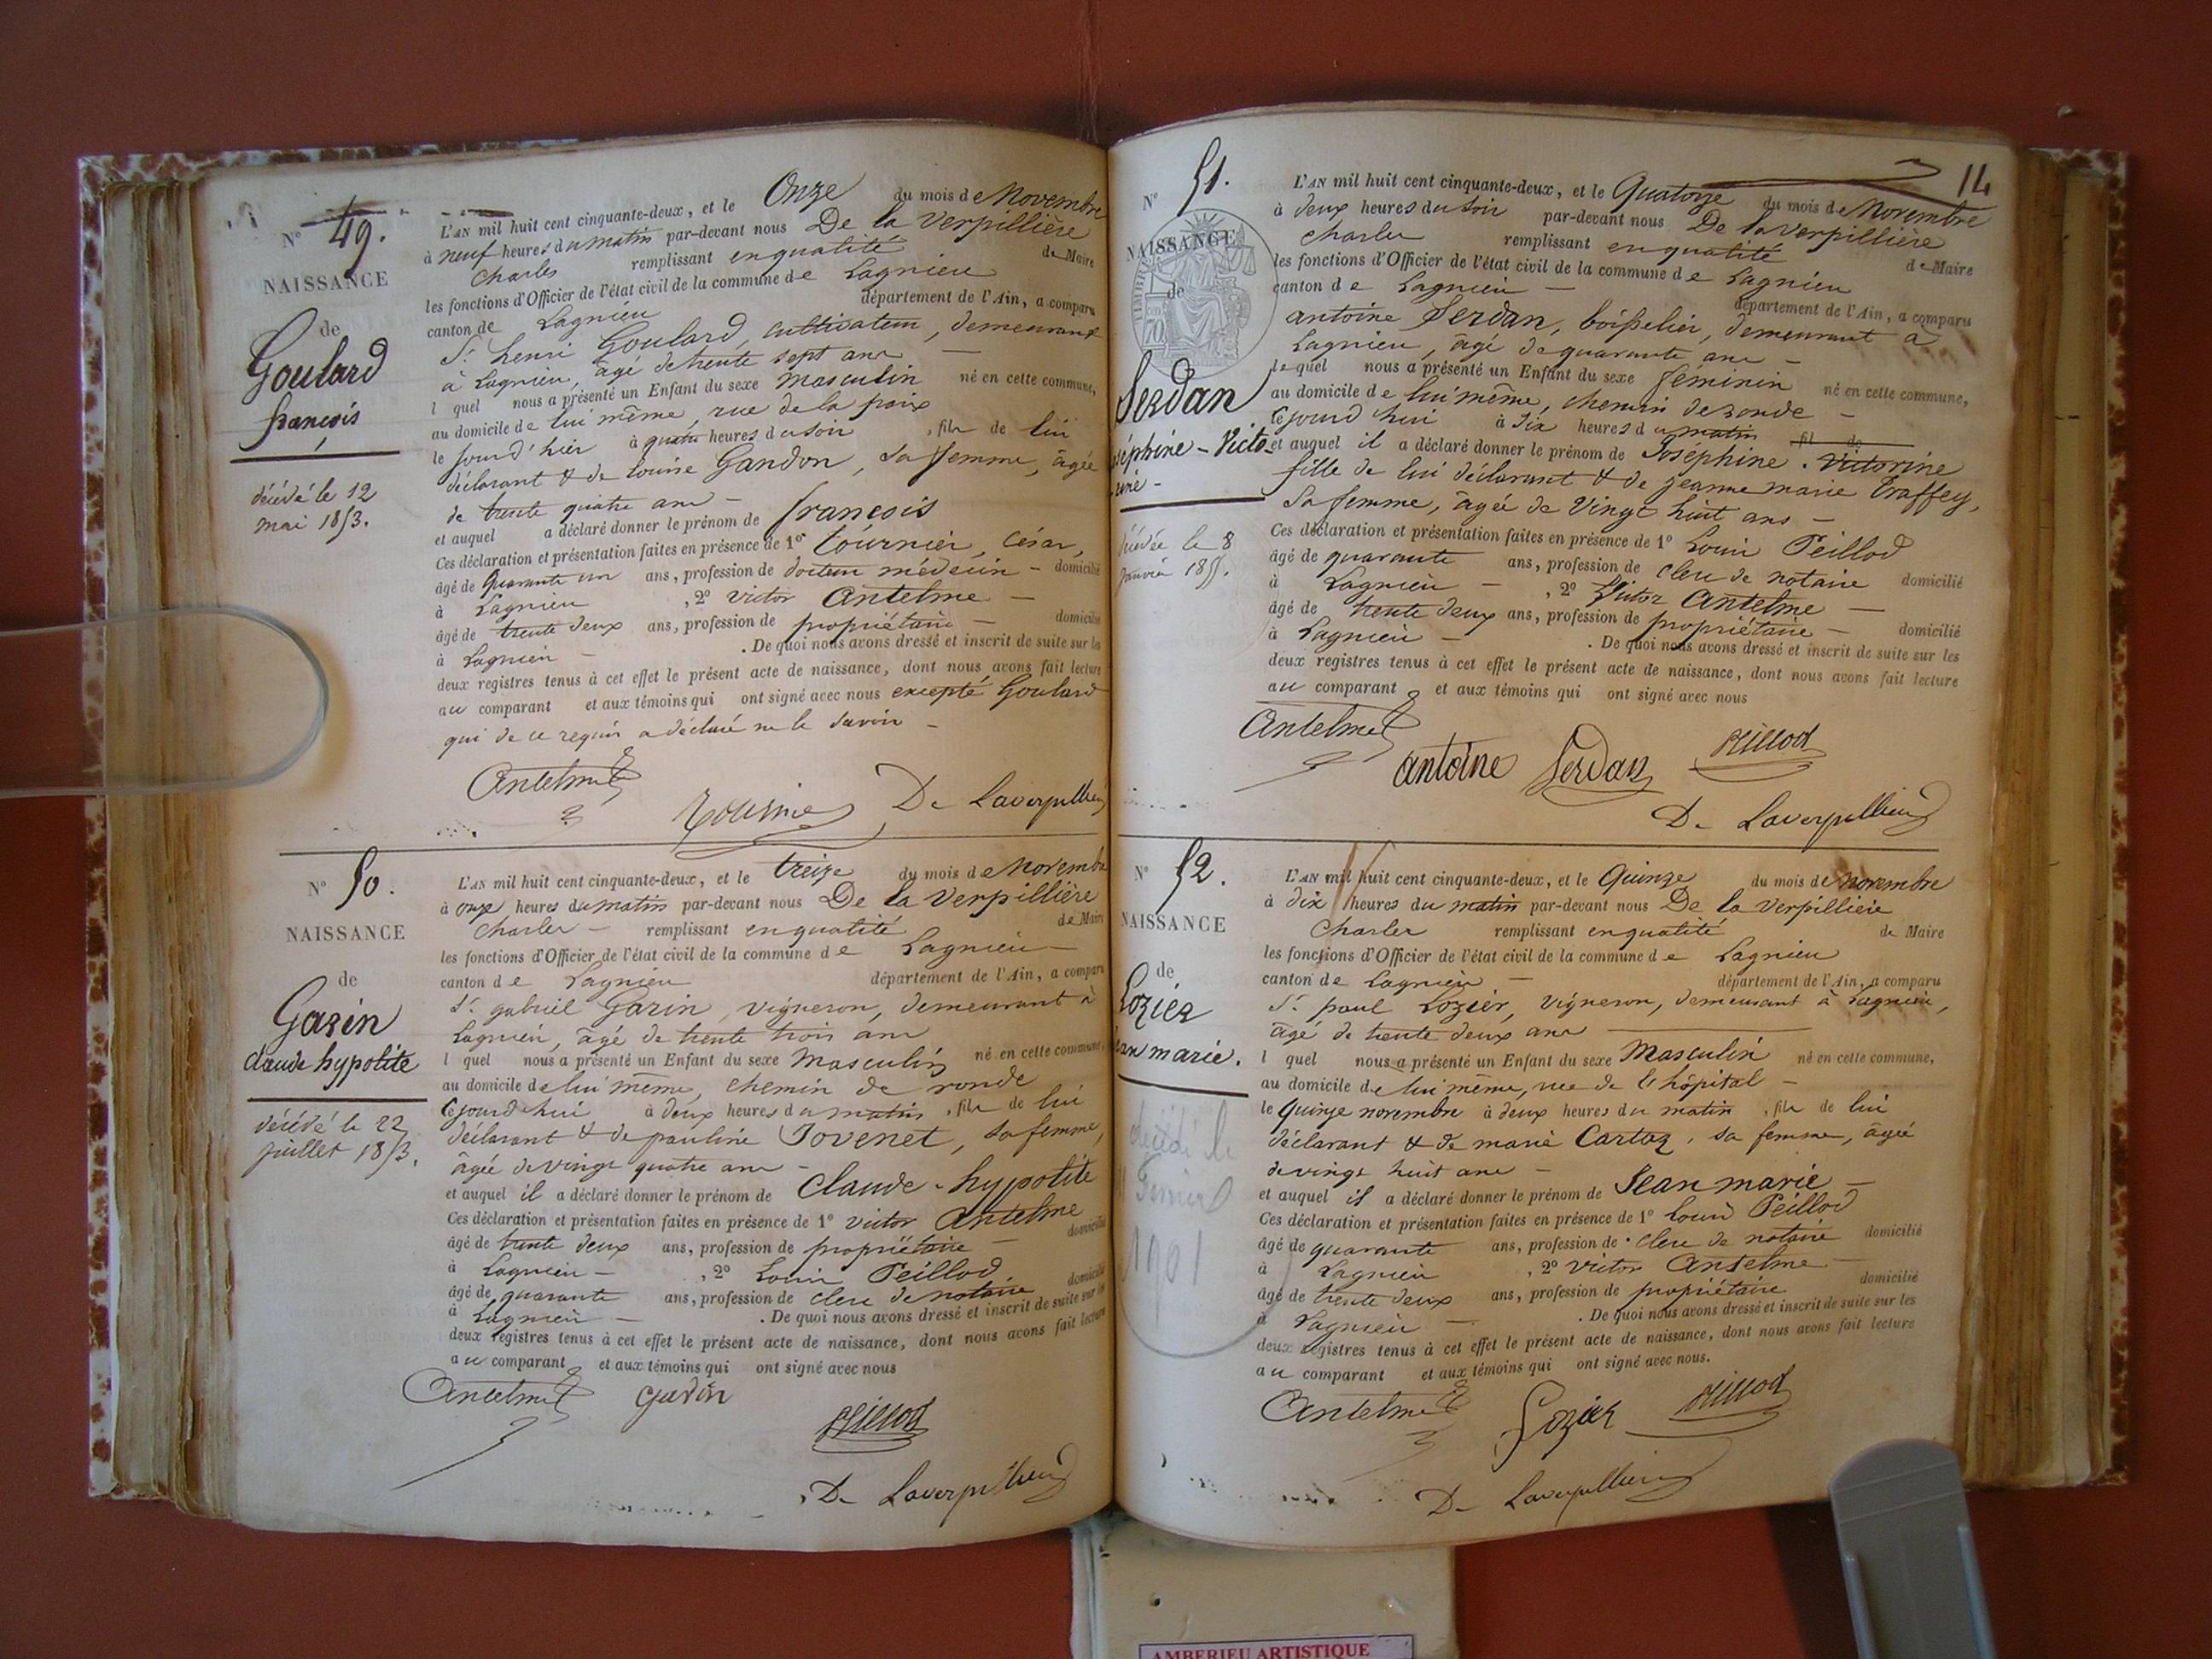 N° 49.
NAISSANCE
de
Goulard
françois
décédé le 12
mai 1853.
L'AN mil huit cent cinquante-deux, et le Onze du mois de Novembre
à neuf heures du matin par-devant nous De la Verpillière
Charles remplissant en qualité de Maire
les fonctions d'Officier de l'état civil de la commune de Lagnieu
canton de Lagnieu département de l'Ain, a comparu
Sr. henri Goulard, cultivateur, demeurant
à Lagnieu, âgé de trente sept ans —
l quel nous a présenté un Enfant du sexe masculin né en cette commune,
au domicile de lui même, rue de la paix
le jour d'hier à quatre heures du soir , fils de lui
déclarant & de Louise Gandon, sa femme, âgée
de trente quatre ans —
et auquel a déclaré donner le prénom de françois
Ces déclaration et présentation faites en présence de 1° tournier, César,
âgé de Quarante un ans, profession de docteur médecin — domicilié
à Lagnieu , 2° victor Antelme —
âgé de trente deux ans, profession de propriétaire — domicilié
à Lagnieu — . De quoi nous avons dressé et inscrit de suite sur les
deux registres tenus à cet effet le présent acte de naissance, dont nous avons fait lecture
au comparant et aux témoins qui ont signé avec nous excepté Goulard
qui de ce requis a déclaré ne le savoir —
Antelme
Tournier De Laverpillière
N° 50.
NAISSANCE
de
Garin
claude hypolite
décédé le 22
juillet 1853.
L'AN mil huit cent cinquante-deux, et le treize du mois de Novembre
à onze heures du matin par-devant nous De la Verpillière
Charles — remplissant en qualité de Maire
les fonctions d'Officier de l'état civil de la commune de Lagnieu —
canton de Lagnieu département de l'Ain, a comparu
Sr. gabriel Garin, vigneron, demeurant à
Lagnieu, âgé de trente trois ans
l quel nous a présenté un Enfant du sexe Masculin né en cette commune,
au domicile de lui même, chemin de ronde
Cejourd'hui à deux heures du matin , fils de lui
déclarant & de pauline Jovenet, sa femme,
âgée de vingt quatre ans —
et auquel il a déclaré donner le prénom de Claude - hypolite
Ces déclaration et présentation faites en présence de 1° victor Antelme
âgé de trente deux ans, profession de propriétaire — domicilié
à Lagnieu — , 2° Louis Peillod
âgé de quarante ans, profession de clerc de notaire domicilié
à Lagnieu — . De quoi nous avons dressé et inscrit de suite sur les
deux registres tenus à cet effet le présent acte de naissance, dont nous avons fait lecture
au comparant et aux témoins qui ont signé avec nous
Antelme Peillod
De Laverpillière
14
N° 51.
NAISSANCE
de
Serdan
L'AN mil huit cent cinquante-deux, et le Quatorze du mois de Novembre
à deux heures du soir par-devant nous De la verpillière
Charles remplissant en qualité de Maire
les fonctions d'Officier de l'état civil de la commune de Lagnieu
canton de Lagnieu — département de l'Ain, a comparu
antoine Serdan, boisselier, demeurant à
Lagnieu, âgé de quarante ans —
lequel nous a présenté un Enfant du sexe féminin né en cette commune,
au domicile de lui même, chemin de ronde —
Cejourd'hui à dix heures du matin fil de
et auquel il a déclaré donner le prénom de Joséphine - Victorine
fille de lui déclarant & de jeanne marie Traffey,
sa femme, âgée de Vingt huit ans —
décédée le 8
janvier 1855.
Ces déclaration et présentation faites en présence de 1° Louis Peillod
âgé de quarante ans, profession de clerc de notaire domicilié
à Lagnieu — , 2° Victor Antelme —
âgé de trente deux ans, profession de propriétaire — domicilié
à Lagnieu — . De quoi nous avons dressé et inscrit de suite sur les
deux registres tenus à cet effet le présent acte de naissance, dont nous avons fait lecture
au comparant et aux témoins qui ont signé avec nous
Antelme
antoine Serdan Peillod
De Laverpillière
N° 52.
NAISSANCE
de
Lozier
Jean marie.
décédé le
1901
L'AN mil huit cent cinquante-deux, et le Quinze du mois de novembre
à dix heures du matin par-devant nous De la verpillière
Charles remplissant en qualité de Maire
les fonctions d'Officier de l'état civil de la commune de Lagnieu
canton de Lagnieu — département de l'Ain, a comparu
Sr. paul Lozier, vigneron, demeurant à Lagnieu,
âgé de trente deux ans
l quel nous a présenté un Enfant du sexe Masculin né en cette commune,
au domicile de lui même, rue de l'hôpital —
le Quinze novembre à deux heures du matin , fils de lui
déclarant & de marie Cartaz, sa femme, âgée
de vingt huit ans —
et auquel il a déclaré donner le prénom de Jean marie —
Ces déclaration et présentation faites en présence de 1° Louis Peillod
âgé de quarante ans, profession de clerc de notaire domicilié
à Lagnieu , 2° Victor Antelme —
âgé de trente deux ans, profession de propriétaire domicilié
à Lagnieu — . De quoi nous avons dressé et inscrit de suite sur les
deux registres tenus à cet effet le présent acte de naissance, dont nous avons fait lecture
au comparant et aux témoins qui ont signé avec nous.
Antelme Lozier Peillod
De Laverpillière
AMBERIEU ARTISTIQUE